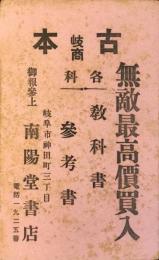 古本
岐商
各科
無敵最高價買入
教科書
參考書
岐阜市神田町三丁目
南陽堂書店
御報參上
電話一九二五番